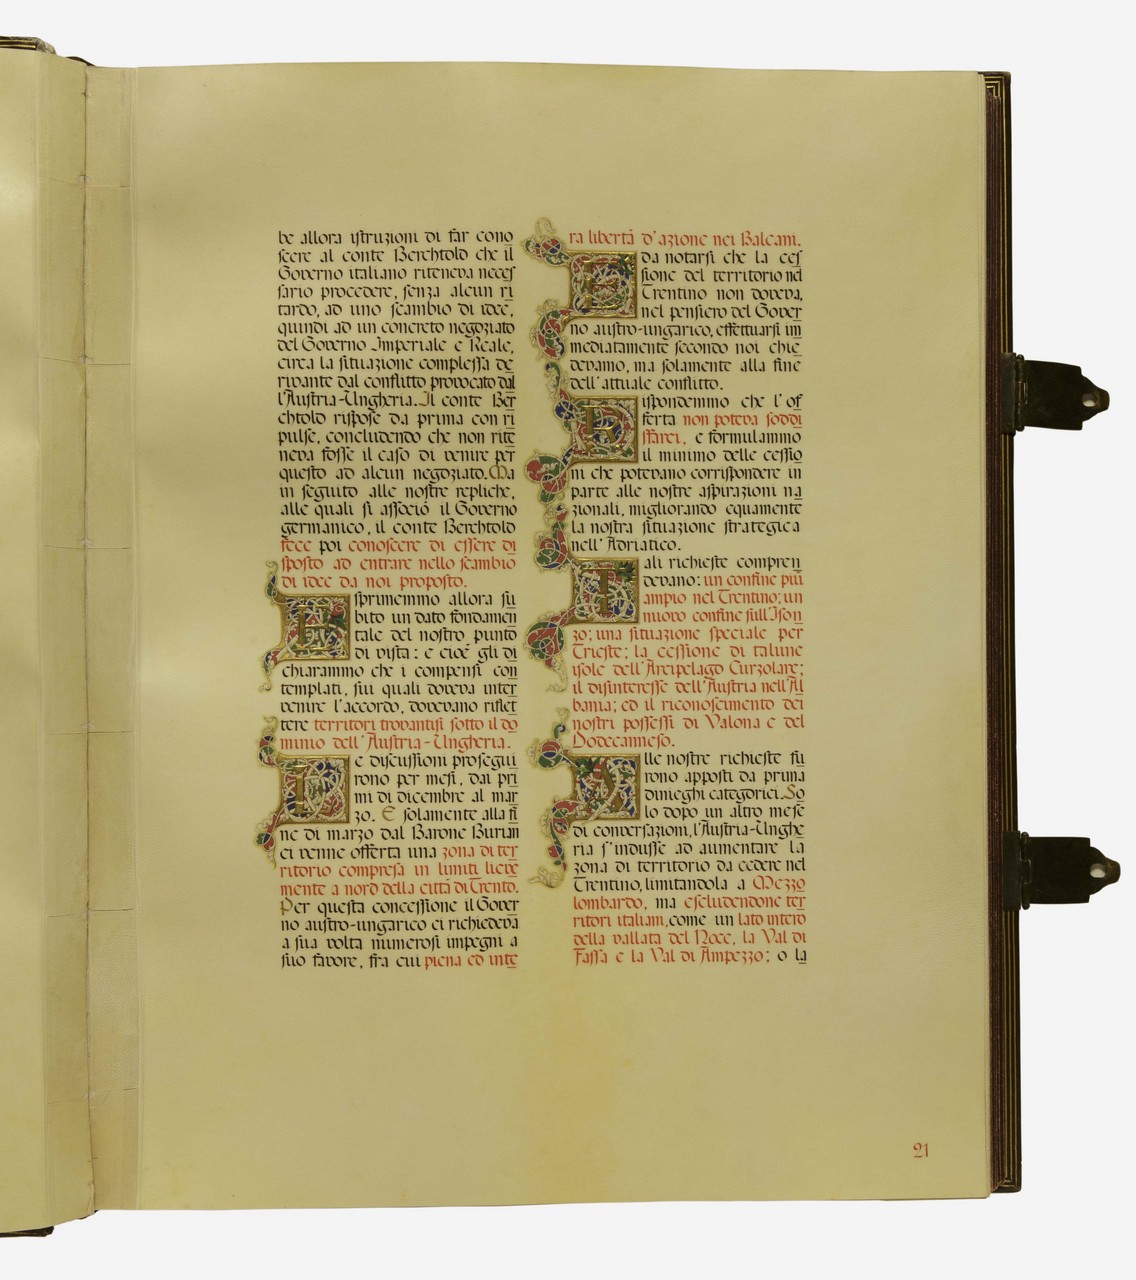 be allora istruzioni di far cono
scere al conte Berchtold che il
Governo italiano riteneva neces
sario procedere, senza alcun ri
tardo, ad uno scambio di idee,
quindi ad un concreto negoziato
del Governo Imperiale e Reale,
circa la situazione complessa de
rivante dal conflitto provocato dal
l'Austria-Ungheria. Il conte Ber
chtold rispose da prima con ri
pulse, concludendo che non rite
neva fosse il caso di venire per
questo ad alcun negoziato. Ma
in seguito alle nostre repliche,
alle quali si associò il Governo
germanico, il conte Berchtold
fece poi conoscere di essere di
sposto ad entrare nello scambio
di idee da noi proposto.
Esprimemmo allora su
bito un dato fondamen
tale del nostro punto
di vista: e cioè gli di
chiarammo che i compensi con
templati, sui quali doveva inter
venire l'accordo, dovevano riflet
tere territori trovantisi sotto il do
minio dell'Austria-Ungheria.
Le discussioni prosegui
rono per mesi, dai pri
mi di dicembre al mar
zo. E solamente alla fi
ne di marzo dal Barone Burian
ci venne offerta una zona di ter
ritorio compresa in limiti lieve
mente a nord della città di Trento.
Per questa concessione il Gover
no austro-ungarico ci richiedeva
a sua volta numerosi impegni a
suo favore, fra cui piena ed inte
ra libertà d'azione nei Balcani.
È da notarsi che la ces
sione del territorio nel
Trentino non doveva,
nel pensiero del Gover
no austro-ungarico, effettuarsi im
mediatamente secondo noi chie
devamo, ma solamente alla fine
dell'attuale conflitto.
Rispondemmo che l'of
ferta non poteva soddi
sfarci, e formulammo
il minimo delle cessio
ni che potevano corrispondere in
parte alle nostre aspirazioni na
zionali, migliorando equamente
la nostra situazione strategica
nell'Adriatico.
Tali richieste compren
devano: un confine più
ampio nel Trentino; un
nuovo confine sull'Ison
zo; una situazione speciale per
Trieste; la cessione di talune
isole dell'Arcipelago Curzolare;
il disinteresse dell'Austria nell'Al
bania; ed il riconoscimento dei
nostri possessi di Valona e del
Dodecanneso.
Alle nostre richieste fu
rono apposti da prima
dinieghi categorici. So
lo dopo un altro mese
di conversazioni, l'Austria-Unghe
ria s'indusse ad aumentare la
zona di territorio da cedere nel
Trentino, limitandola a Mezzo
lombardo, ma escludendone ter
ritori italiani, come un lato intero
della vallata del Noce, la Val di
Fassa e la Val di Ampezzo; o la
21